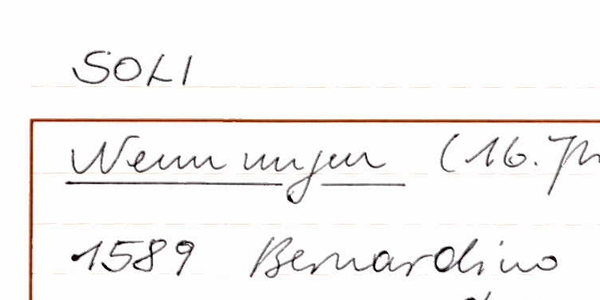 SOLI
Nennungen (16. Jh
1589 Bernardino